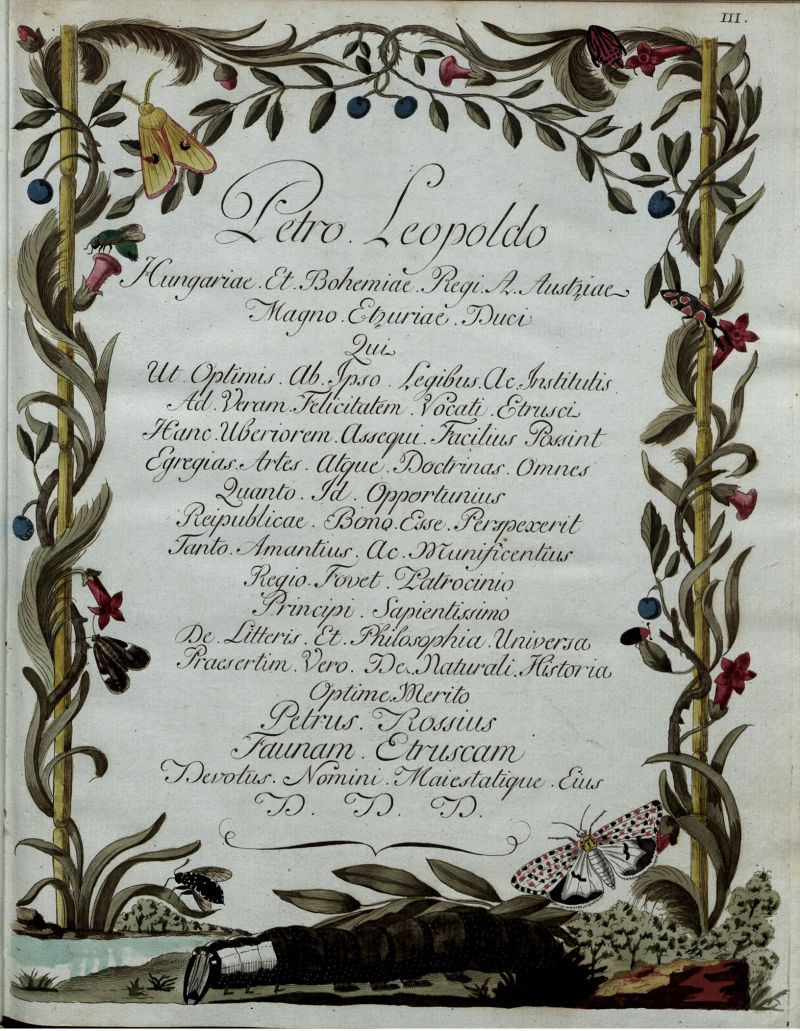 III.
Petro. Leopoldo
Hungariae. Et. Bohemiae. Regi. A. Austriae
Magno. Etruriae. Duci
Qui
Ut. Optimis. Ab. Ipso. Legibus. Ac. Institutis
Ad. Veram. Felicitatem. Vocati. Etrusci
Hanc. Uberiorem. Assequi. Facilius. Possint
Egregias. Artes. Atque. Doctrinas. Omnes
Quanto. Id. Opportunius
Reipublicae. Bono. Esse. Perspexerit
Tanto. Amantius. Ac. Munificentius
Regio. Fovet. Patrocinio
Principi. Sapientissimo
De. Litteris. Et. Philosophia. Universa
Praesertim. Vero. De. Naturali. Historia
Optime. Merito
Petrus. Rossius
Faunam. Etruscam
Devotus. Nomini. Maiestatique. Eius
D. D. D.